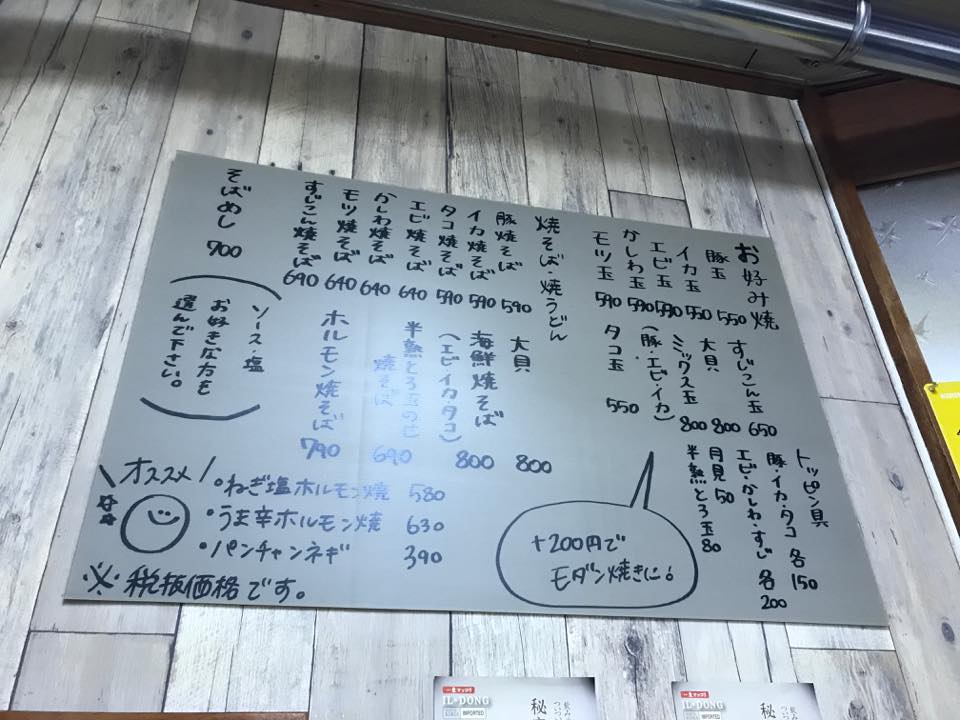 お好み焼
豚玉 550
イカ玉 550
エビ玉 590
かしわ玉 590
モツ玉 590
すじこん玉 650
大貝 800
ミックス玉 800
(豚・エビ・イカ)
タコ玉 550
トッピン具
豚・イカ・タコ 各150
エビ・かしわ・すじ 各200
月見 50
半熟とろ玉 80
+200円で
モダン焼きに!
焼そば・焼うどん
豚焼そば 590
イカ焼そば 590
タコ焼そば 590
エビ焼そば 640
かしわ焼そば 640
モツ焼そば 640
すじこん焼そば 690
大貝 800
海鮮焼そば 800
(エビ・イカ・タコ)
半熟とろ玉のせ
焼そば 690
ホルモン焼そば 790
そばめし 700
ソース・塩
お好きな方を
選んで下さい。
オススメ
・ねぎ塩ホルモン焼 580
・うま辛ホルモン焼 630
・パンチャンネギ 390
※税抜価格です。
IL・DONG
IMPORTED
秘
IL・DONG
IMPORTED
秘